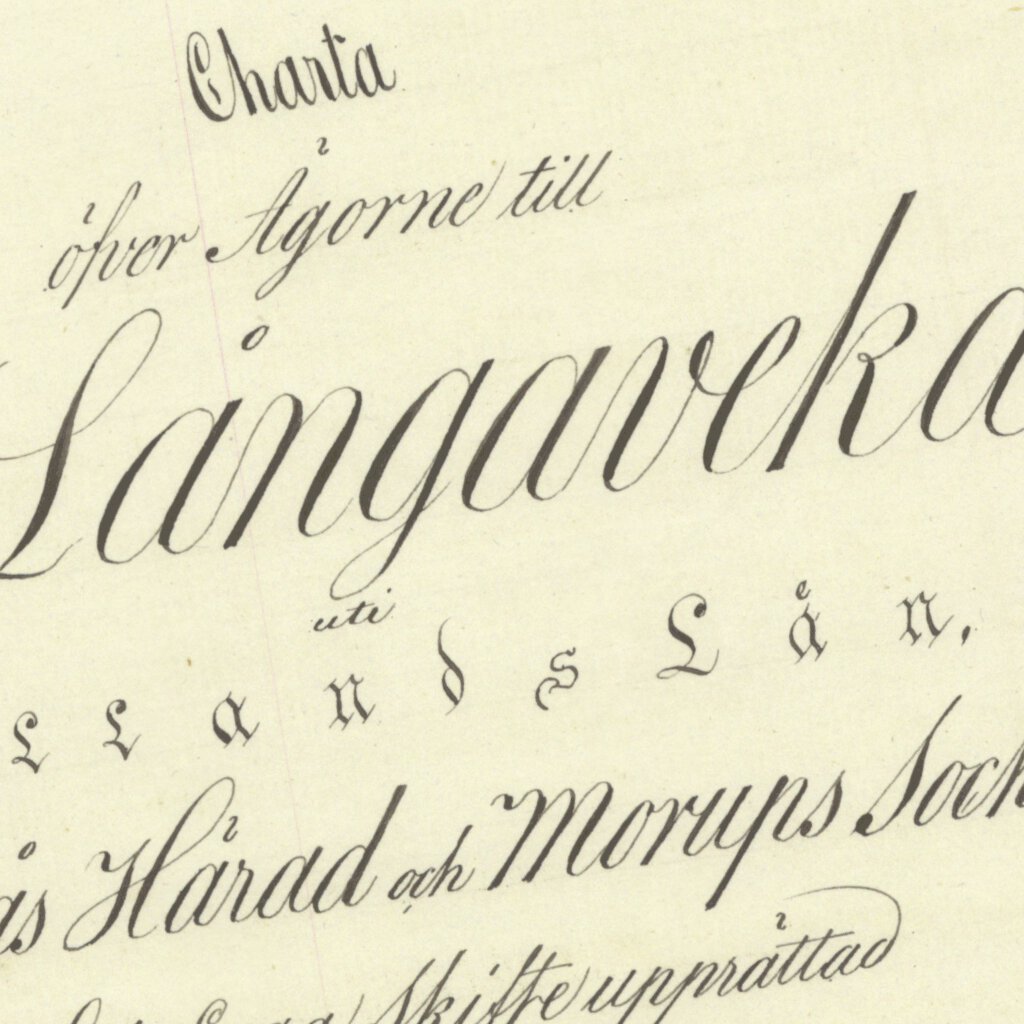 Charta
öfver Ägorne till
Långaveka
uti
llands Län.
ås Härad och Morups Sock
Skifte upprättad